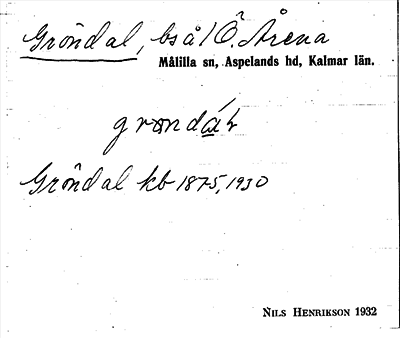 Gröndal, bs å Ö. Årena
Målilla sn, Aspelands hd, Kalmar län.
Gröndal kb 1875, 1930
NILS HENRIKSON 1932